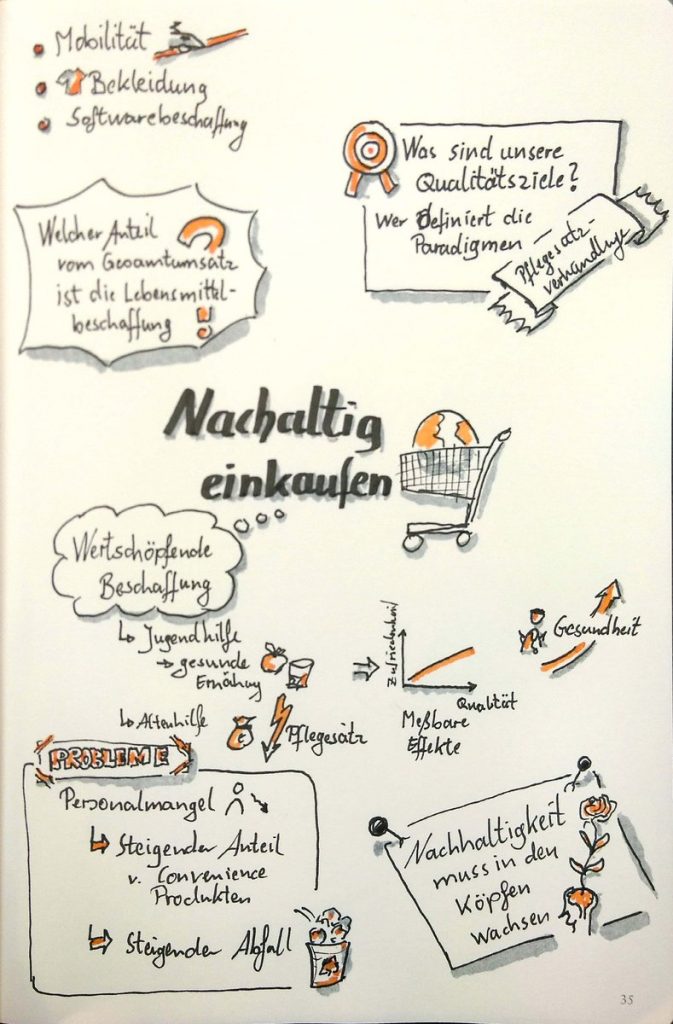 Mobilität
Bekleidung
Softwarebeschaffung
Was sind unsere
Qualitätsziele?
Wer definiert die
Paradigmen
Pflegesatz-
verhandlung
Welcher Anteil
vom Gesamtumsatz
ist die Lebensmittel-
beschaffung
Nachaltig
einkaufen
Wertschöpfende
Beschaffung
Jugendhilfe
gesunde
Ernährung
Altenhilfe
Pflegesätz
Zufriedenheit
Qualität
Meßbare
Effekte
Gesundheit
PROBLEME
Personalmangel
Steigender Anteil
v. Convenience
Produkten
Steigender Abfall
Nachhaltigkeit
muss in den
Köpfen
wachsen
35